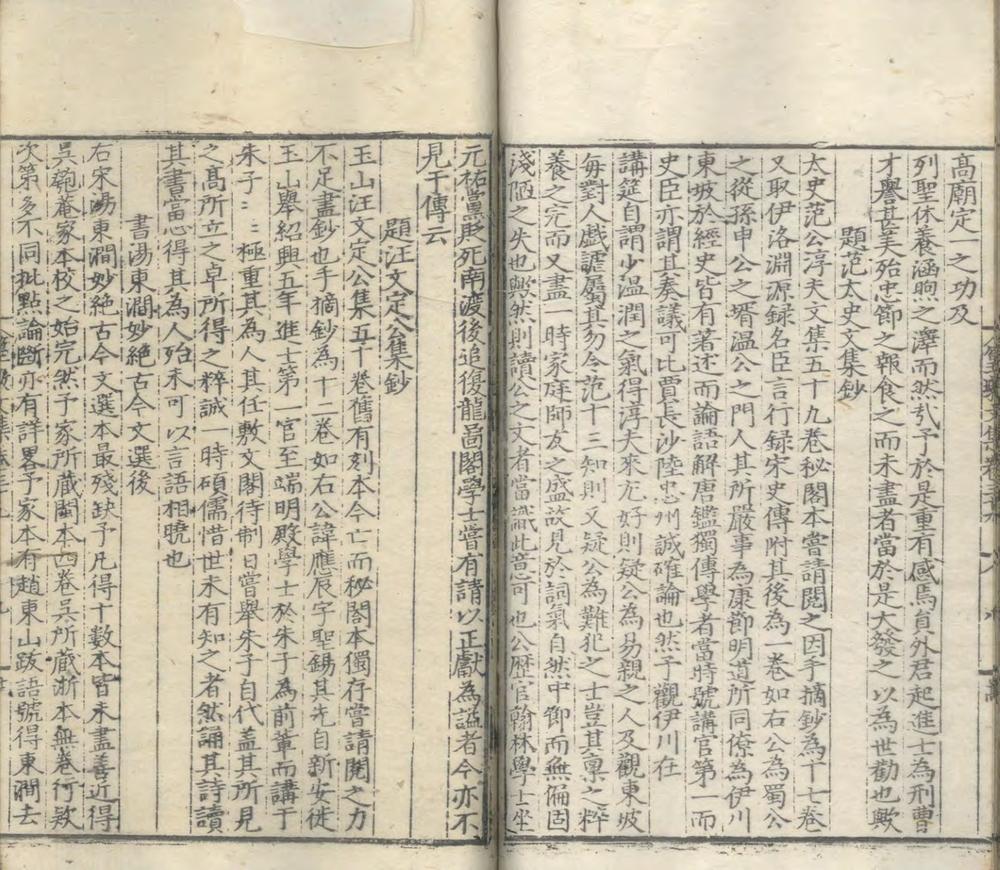 高廟定一之功及
列聖休養涵煦之澤而然㢤予於是重有感焉員外君起進士為刑曹
才譽甚美殆忠節之報食之而未盡者當於是大發之以為世勸也歟
題范太史文集鈔
太史范公淳夫文集五十九卷秘閣本嘗請閱之因手摘鈔為十七卷
又取伊洛淵源録名臣言行録宋史傳附其後為一卷如右公為蜀公
之從孫申公之壻溫公之門人其所嚴事為康節明道所同僚為伊川
東坡於經史皆有著述而論語解唐鑑獨傳學者當時號講官第一而
史臣亦謂其奏議可比賈長沙陸忠州誠確論也然予觀伊川在
講筵自謂少溫潤之氣得淳夫來尤好則疑公為易親之人及觀東坡
每對人戯謔屬其勿令范十三知則又疑公為難犯之士豈其禀之粹
養之完而又盡一時家庭師友之盛故見於詞氣自然中節而無偏固
淺陋之失也歟然則讀公之文者當識此意可也公歷官翰林學士坐
元祐黨貶死南渡後追復龍啚閣學士嘗有請以正獻為諡者今亦不
見于傳云
題汪文定公集鈔
玉山汪文定公集五十卷舊有刻本今亡而秘閣本獨存嘗請閱之力
不足盡鈔也手摘鈔為十二卷如右公諱應辰字聖錫其先自新安徙
玉山舉紹興五年進士第一官至端明殿學士於朱子為前輩而講于
朱子〻〻極重其為人其任敷文閣待制日嘗舉朱子自代蓋其所見
之髙所立之卓所得之粹誠一時碩儒惜世未有知之者然誦其詩讀
其書當心得其為人殆未可以言語相曉也
書湯東澗妙絕古今文選後
右宋湯東澗妙絕古今文選本最殘缺予凡得十數本皆未盡善近得
吳匏菴家本校之始完然予家所蔵閩本四卷吳所蔵浙本無卷行欵
次第多不同批點論斷亦有詳畧予家本有趙東山跋語號得東澗去